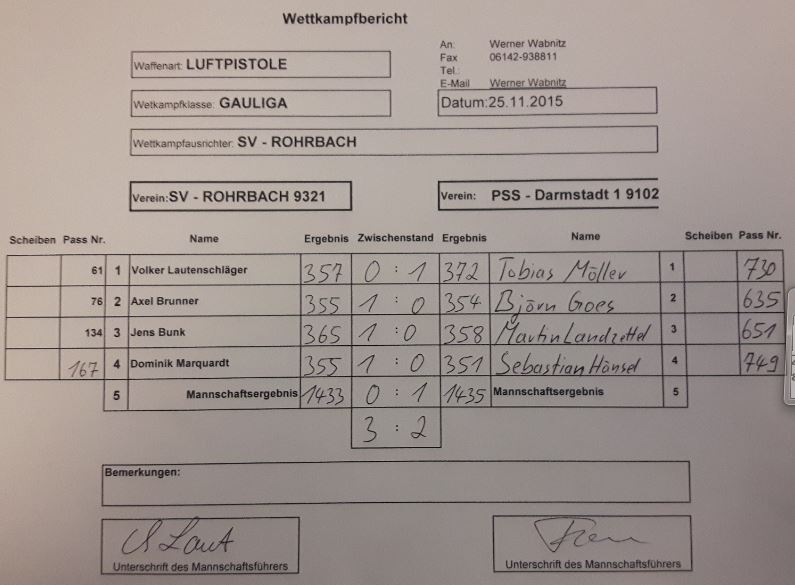 Wettkampfbericht
An: Werner Wabnitz
Fax 06142-938811
Tel.:
E-Mail Werner Wabnitz
Waffenart: LUFTPISTOLE
Wetkampfklasse: GAULIGA
Datum:25.11.2015
Wettkampfausrichter: SV - ROHRBACH
Verein:SV - ROHRBACH 9321 Verein: PSS - Darmstadt 1 9102
Scheiben Pass Nr. Name Ergebnis Zwischenstand Ergebnis Name Scheiben Pass Nr.
61 1 Volker Lautenschläger 357 0 : 1 372 Tobias Möller 1 730
76 2 Axel Brunner 355 1 : 0 354 Björn Goes 2 635
134 3 Jens Bunk 365 1 : 0 358 Martin Landzettel 3 651
167 4 Dominik Marquardt 355 1 : 0 351 Sebastian Hänsel 4 749
5 Mannschaftsergebnis 1433 0 : 1 1435 Mannschaftsergebnis 5
3 : 2
Bemerkungen:
Unterschrift des Mannschaftsführers Unterschrift des Mannschaftsführers